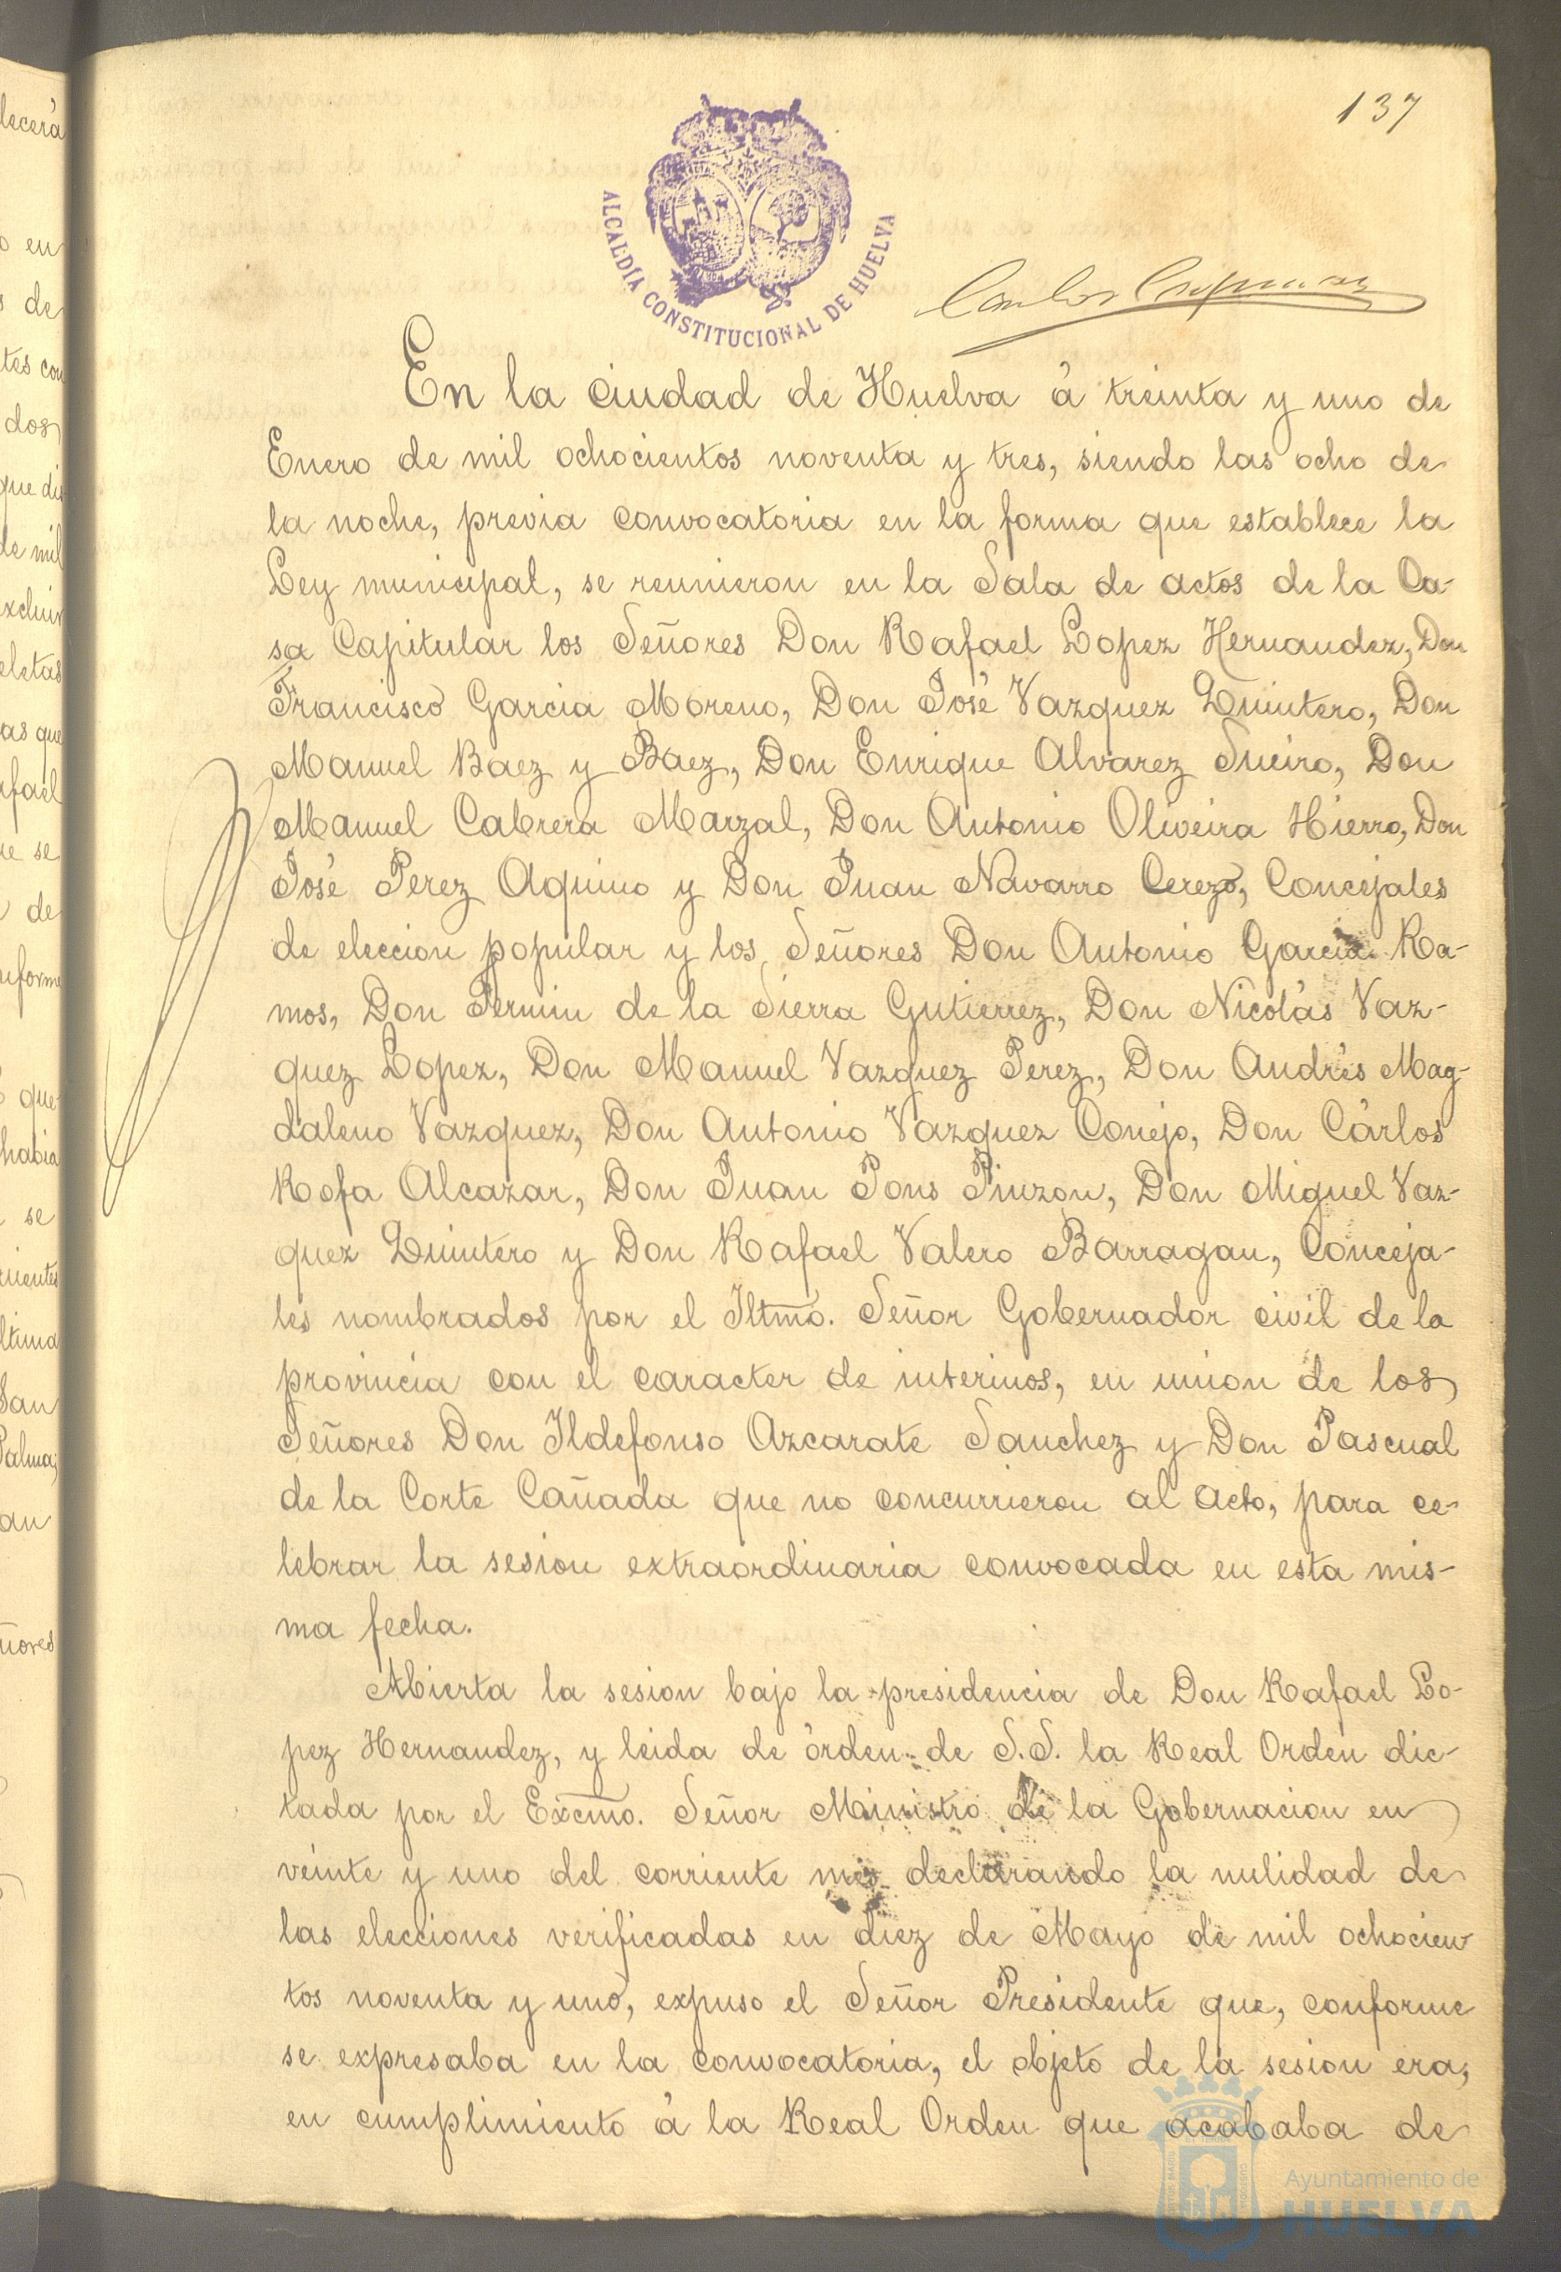 137
ALCALDÍA CONSTITUCIONAL DE HUELVA
Carlos
En la ciudad de Huelva á treinta y uno de
Enero de mil ochocientos noventa y tres, siendo las ocho de
la noche, previa convocatoria en la forma que establece la
Ley municipal, se reunieron en la Sala de actos de la Ca-
sa Capitular los Señores Don Rafael Lopez Hernandez, Don
Francisco Garcia Moreno, Don José Vazquez Quintero, Don
Manuel Baez y Baez, Don Enrique Alvarez Sueiro, Don
Manuel Cabrera Marzal, Don Antonio Oliveira Hierro, Don
José Perez Aquino y Don Juan Navarro Cerezo, Concejales
de eleccion popular y los Señores Don Antonio Garcia Ra-
mos, Don Fermin de la Sierra Gutierrez, Don Nicolás Vaz-
quez Lopez, Don Manuel Vazquez Perez, Don Andrés Mag-
daleno Vazquez, Don Antonio Vazquez Conejo, Don Cárlos
Rofa Alcazar, Don Juan Pons Pinzon, Don Miguel Vaz-
quez Quintero y Don Rafael Valero Barragan, Conceja-
les nombrados por el Iltmo. Señor Gobernador civil de la
provincia con el caracter de interinos, en union de los
Señores Don Ildefonso Azcarate Sanchez y Don Pascual
de la Corte Cañada que no concurrieron al acto, para ce-
lebrar la sesion extraordinaria convocada en esta mis-
ma fecha.
Abierta la sesion bajo la presidencia de Don Rafael Lo-
pez Hernandez, y leida de órden de S.S. la Real Orden dic-
tada por el Excmo. Señor Ministro de la Gobernacion en
veinte y uno del corriente mes declarando la nulidad de
las elecciones verificadas en diez de Mayo de mil ochocien
tos noventa y uno, expuso el Señor Presidente que, conforme
se expresaba en la convocatoria, el objeto de la sesion era,
en cumplimiento á la Real Orden que acababa de
Ayuntamiento de
HUELVA